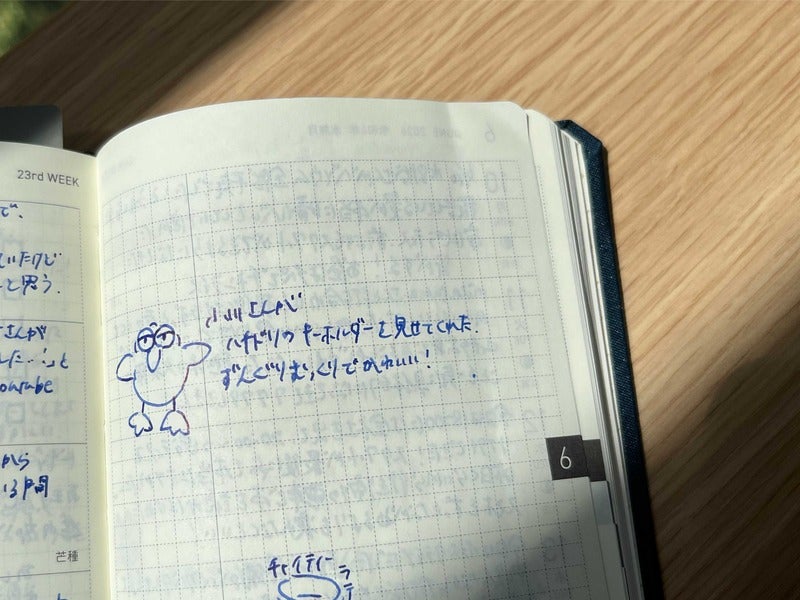 23rd WEEK
で、
いたけど
と思う.
さんが
した…!」と
youtube
から
いる間
芒種
小川さんが
ハチドリのキーホルダーを見せてくれた.
ずんぐりむっくりでかわいい!
6
チャイティー
ラ
テ